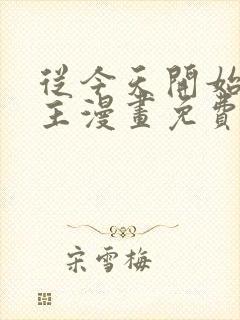 從今天開始
主漫畫免費
宋雪梅